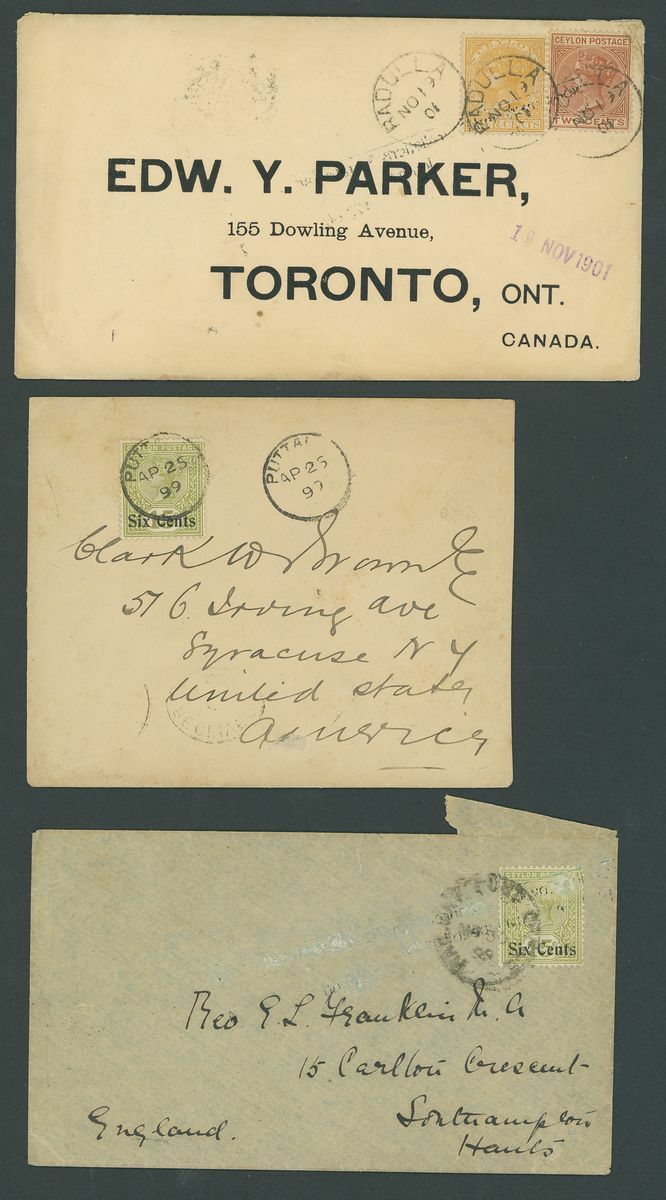 BADULLA
NO 19
01
BADULLA
NO 19
01
CEYLON POSTAGE
TWO CENTS
NO 19
01
EDW. Y. PARKER,
155 Dowling Avenue,
19 NOV 1901
TORONTO, ONT.
CANADA.
CEYLON POSTAGE
Six Cents
AP 25
99
AP 25
99
Clark W Brown
516. Irving ave
Syracuse N Y
United states
America
CEYLON
Six Cents
Rev E. L. Franklin M. A
15 Carlton Crescent
Southampton
England.
Hants